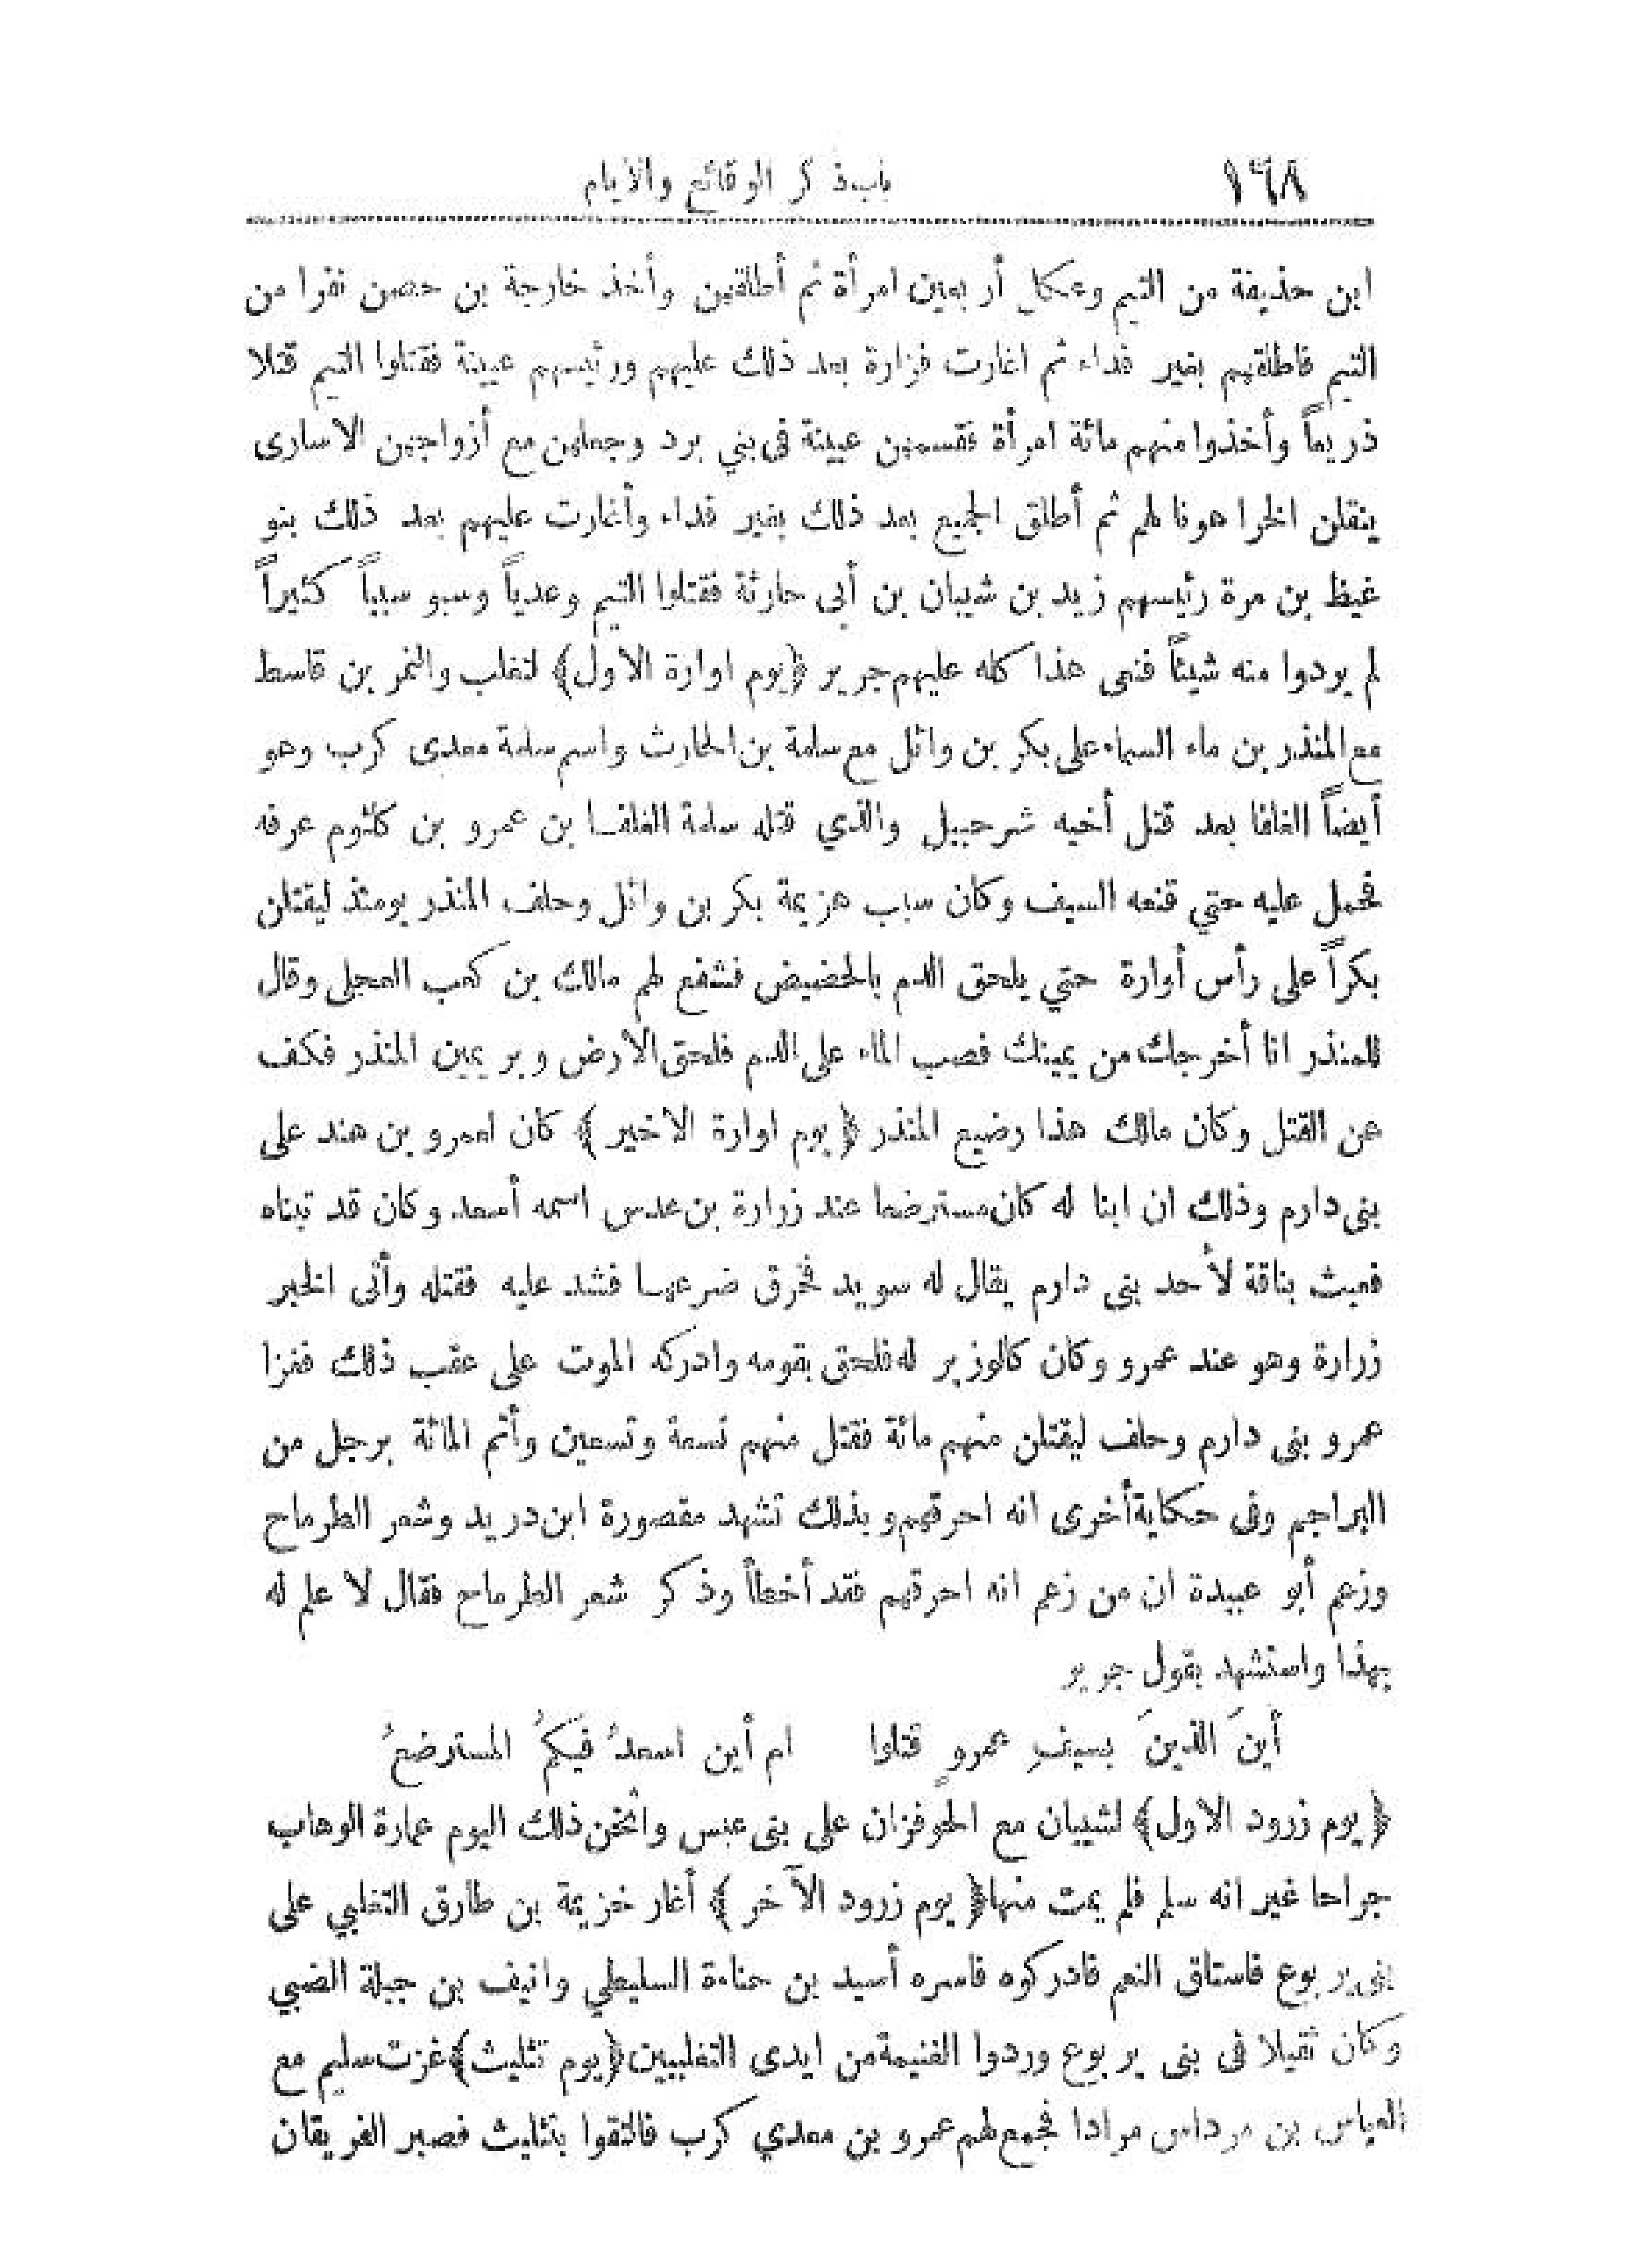 ١٦٨
باب ذكر الوقائع والأيام
ابن حذيفة من التيم وعكل أربعين امرأة ثم أطلقهن وأخذ خارجة بن حصن نفرا من
التيم فاطلقهم بغير فداء ثم اغارت فزارة بعد ذلك عليهم ورئيسهم عيينة فقتلوا التيم قتلا
ذريعاً وأخذوا منهم مائة امرأة فقسمهن عيينة في بني برد وجعلهن مع أزواجهن الاسارى
ينقلن الخرا هونا لهم ثم أطلق الجميع بعد ذلك بغير فداء وأغارت عليهم بعد ذلك بنو
غيظ بن مرة رئيسهم زيد بن شيبان بن أبى حارثة فقتلوا التيم وعدياً وسبو سبياً كثيراً
لم يردوا منه شيئاً فنعى هذا كله عليهم جرير ﴿يوم اوارة الاول﴾ لتغلب والنمر بن قاسط
مع المنذر بن ماء السماء على بكر بن وائل مع سلمة بن الحارث واسم سلمة معدى كرب وهو
أيضاً الغلفا بعد قتل أخيه شرحبيل والذي قتله سلمة الغلفا بن عمرو بن كلثوم عرفه
فحمل عليه حتي قنعه السيف وكان سبب هزيمة بكر بن وائل وحلف المنذر يومئذ ليقتلن
بكراً على رأس أوارة حتي يلحق الدم بالحضيض فشفع لهم مالك بن كعب العجلى وقال
للمنذر انا أخرجك من يمينك فصب الماء على الدم فلحق الأرض وبر يمين المنذر فكف
عن القتل وكان مالك هذا رضيع المنذر ﴿ يوم اوارة الاخير ﴾ كان لعمرو بن هند على
بنى دارم وذلك ان ابنا له كان مسترضعا عند زرارة بن عدس اسمه أسعد وكان قد تبناه
فعبث بناقة لأحد بنى دارم يقال له سويد فخرق ضرعها فشد عليه فقتله وأتى الخبر
زرارة وهو عند عمرو وكان كالوزير له فلحق بقومه وادركه الموت على عقب ذلك فغزا
عمرو بنى دارم وحلف ليقتلن منهم مائة فقتل منهم تسعة وتسعين وأتم المائة برجل من
البراجم وفى حكاية أخرى انه احرقهم وبذلك تشهد مقصورة ابن دريد وشعر الطرماح
وزعم أبو عبيدة ان من زعم انه احرقهم فقد أخطأ وذكر شعر الطرماح فقال لا علم له
بهذا واستشهد بقول جرير
أينَ الذينَ بسيفِ عمروٍ قتلوا ام أين اسعدُ فيكمُ المسترضعُ
﴿ يوم زرود الاول﴾ لشيبان مع الحوفزان على بنى عبس واثخن ذلك اليوم عمارة الوهاب
جراحا غير انه سلم فلم يمت منها ﴿ يوم زرود الآخر ﴾ أغار خزيمة بن طارق التغلبي على
بنى يربوع فاستاق النعم فادركوه فاسره أسيد بن حناءة السليطي وانيف بن جبلة الضبي
وكان ثقيلا فى بنى يربوع وردوا الغنيمة من ايدى التغلبيين ﴿يوم تثليث﴾ غزت سليم مع
العباس بن مرداس مرادا فجمع لهم عمرو بن معدي كرب فالتقوا بتثليث فصبر الفريقان